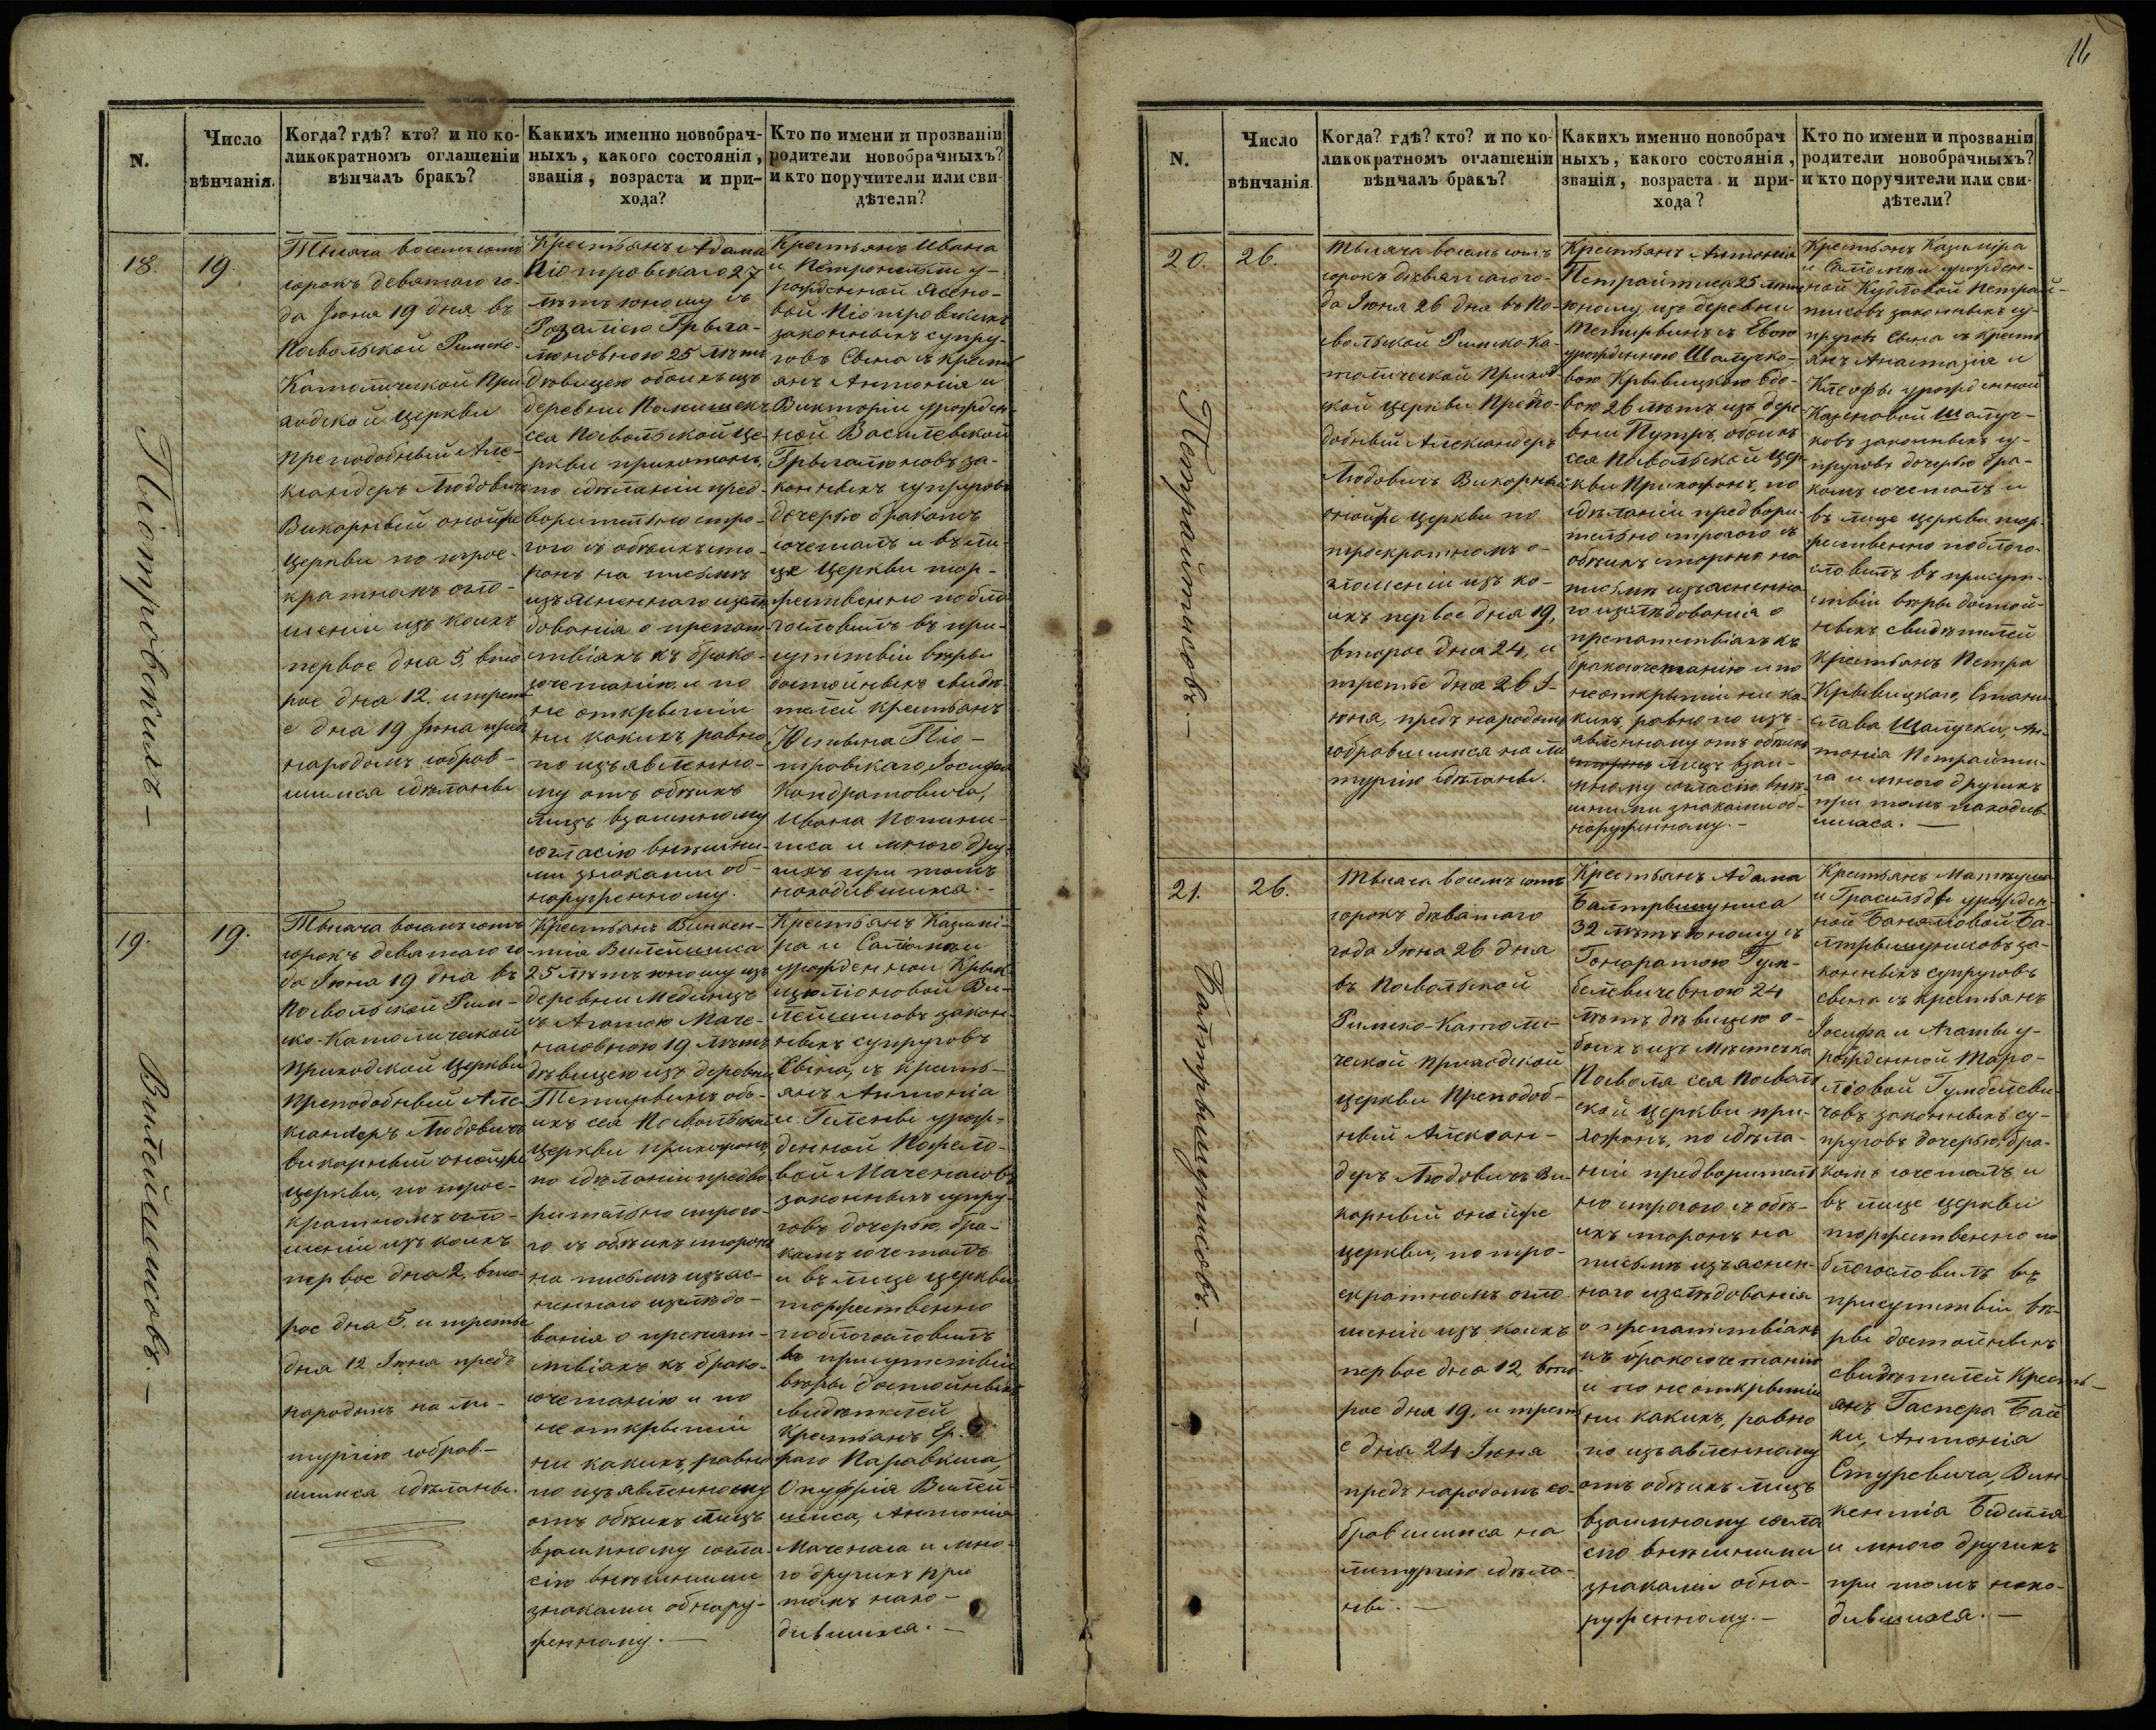 16
N.
Число
вѣнчанія.
Когда? гдѣ? кто? и по ко-
ликократномъ оглашеніи
вѣнчалъ бракъ?
Какихъ именно новобрач-
ныхъ, какого состоянія,
званія, возраста и при-
хода?
Кто по имени и прозваніи
родители новобрачныхъ?
и кто поручители или сви-
дѣтели?
18.
19.
Піотровскихъ –
Тысяча восемьсотъ
сорокъ деватаго го-
да Іюна 19 дня въ
Посвольской Римско-
Католической При
ходской церкви
преподобный Але-
ксандеръ Людовичъ
Викарный онойже
церкви по трое-
кратномъ огло-
шении изъ коихъ
первое дна 5, вто
рое дна 12. и трет
е дна 19 Іюна пред
народомъ собрав-
шимса сдѣланны
Крестьянъ Адама
Піотровскаго 27
лѣтъ юношу съ
Розаліею Грыга-
люновною 25 лѣтъ
дѣвицею обоихъ изъ
деревни
сея Посвольской це-
ркви прихожанъ
по сдѣланіи пред-
варительно стро-
гого съ обѣихъ сто-
ронъ на письмѣ
изъясненнаго изслѣ
дованіа о препят-
ствіахъ къ брако-
сочетанію и по
не открытіи
ни какихъ, равно
по изъявленно-
му отъ обѣихъ
лицъ взаимному
согласію внѣшни-
ми знаками об-
наруженному.
Крестьянъ Ивана
и Петронеллы у-
рожденной Ясено-
вой Піотровскихъ
законныхъ супру-
говъ сына съ крестъ
янъ Антонія и
Викторіи урожден-
ной Василевской
Грыгалюновъ за-
конныхъ супруговъ
дочерью бракомъ
сочеталъ и въ ли-
це церкви тор-
жественно побло
гословилъ въ при-
сутствіи вѣры
достойныхъ свидѣ-
телей крестьянъ
Юстына Піо-
тровскаго, Іосифа
Кондратовича,
Ивана
и много дру-
гихъ при томъ
находившихса.-
19.
19.
Вилейшисовъ.-
Тысяча восемьсотъ
сорокъ деватаго го-
да Іюна 19 дна въ
Посвольской Рим-
ско-Католической
Приходской церкви
преподобный Але-
ксандеръ Людовичъ
викарный онойже
церкви, по трое-
кратномъ огло-
шеніи изъ коихъ
первое дна 2, вто-
рое дна 5. и третье
дна 12 Іюна предъ
народомъ на ли-
тургію собрав.-
шимса сдѣланны.
Крестьянъ Викен-
тіа Вилейшиса
25 лѣтъ юношу изъ
деревни Мединцъ
съ Агатою Маче-
насовною 19 лѣтъ
дѣвицею изъ деревни
Тетырвинъ обо-
ихъ сея Посвольской
церкви прихожанъ
по сдѣланіи предва
рительно строго-
го съ обѣихъ сторонъ
на письмѣ изъяс-
неннаго изслѣдо-
ванія о препят-
ствіахъ къ брако-
сочетанію и по
не открытіи
ни какихъ, равно
по изъявленному
отъ обѣихъ лицъ
взаимному согла-
сію внѣшними
знаками обнару-
женному. –
Крестьянъ Казимі-
ра и Саломеи
урожденной
Ви-
лейшисовъ закон-
ныхъ супруговъ
сына, съ кресть-
янъ Антоніа
и Гелены урож-
денной
вой Маченасовъ
законныхъ супру-
говъ дочерью, бра-
комъ сочеталъ
и въ лице церкви
торжественно
поблогословилъ
въ присутствіи
вѣры достойныхъ
свидѣтелей
крестьянъ
Онуфріа Вилей-
шиса, Антоніа
Маченаса и мно-
го другихъ при
томъ нахо-
дившихса. –
N.
Число
вѣнчанія
Когда? гдѣ? кто? и по ко-
ликократномъ оглашеніи
вѣнчалъ бракъ?
Какихъ именно новобрач
ныхъ, какого состоянія,
званія, возраста и при-
хода?
Кто по имени и прозваніи
родители новобрачныхъ?
и кто поручители или сви-
дѣтели?
20.
26.
Петрайтисовъ. –
тысяча восемьсотъ
сорокъ деватаго го-
да Іюна 26 дна въ По-
свольской Римско-Ка-
толической Приход
ской церкви Препо-
добный Александеръ
Людовичъ Викарный
онойже церкви по
троекратномъ о-
глошеніи изъ ко-
ихъ первое дна 19,
второе дна 24, и
третье дна 26 І-
юна, предъ народомъ
собравшимса на ли
тургію сдѣланны.
Крестьянъ Антоніа
Петрайтиса 25 лѣтъ
юношу изъ деревни
Тетырвинъ съ Евою
урожденною Шалучко-
вою Крывицкою вдо-
вою 26 лѣтъ изъ дере
вни Путръ, обоихъ
сея Посвольской цер-
кви прихожанъ, по
сдѣланіи предвари-
тельно строгого съ
обѣихъ сторонъ на
письмѣ изъясненна
го изслѣдованіа о
препатствіахъ къ
бракосочетанію и по
не открытіи ни ка-
кихъ, равно по изъ-
явленному отъ обѣихъ
лицъ взаи-
мному согласію внѣ
шними знаками об-
наруженному. –
Крестьянъ Казиміра
и Саломеи урожден-
ной Кудловой Петрай-
тисовъ законныхъ су-
пруговъ сына съ кресть
янъ Анастазіа и
Клеофы урожденной
Шалуч-
ковъ законныхъ су-
пруговъ дочерью бра-
комъ сочеталъ и
въ лице церкви тор-
жественно поблого-
словилъ въ присут-
ствіи вѣры достой-
ныхъ свидѣтелей
крестьянъ Петра
Крывицкаго, Стани-
слава Шалучки, Ан-
тоніа Петрайти-
са и много другихъ
при томъ находив-
шихса. –
21.
26.
Балтрышунисовъ. –
тысяча восемьсотъ
сорокъ деватаго
года Іюна 26 дна
въ Посвольской
Римско-Католи-
ческой приходской
церкви Преподоб-
ный Алексан-
деръ Людовичъ Ви-
карный онойже
церкви, по тро-
екратномъ огло
шеніи изъ коихъ
первое дна 12, вто
рое дна 19, и треть
е дна 24 Іюна
предъ народомъ со-
бравшимса на
литургію сдѣла-
нны. –
Крестьянъ Адама
Балтрышуниса
32 лѣтъ юношу съ
Гоноратою Гум-
белевичевною 24
лѣтъ дѣвицею о-
боихъ изъ мѣстечка
Посволя сея Посволь
ской церкви при-
хожанъ, по сдѣла-
ніи предварителъ
но строгого съ обѣ-
ихъ сторонъ на
письмѣ изъяснен-
наго изслѣдованіа
о препатствіахъ
къ бракосочетанію
и по не открытіи
ни какихъ, равно
по изъявленному
отъ обѣихъ лицъ
взаимному согла
сію внѣшними
знаками обна-
руженному. –
Крестьянъ Матеуша
и Грасильды урожден-
ной Ба-
лтрышунисовъ за-
конныхъ супруговъ
сына съ крестьянъ
Іосифа и Агаты у-
рожденной
Гумбелеви-
човъ законныхъ су-
пруговъ дочерью, бра-
комъ сочеталъ и
въ лице церкви
торжественно по
блогословилъ въ
присутствіи вѣ-
ры достойныхъ
свидѣтелей Кресть-
янъ Гаспера
Антоніа
Стуревича, Вин
кентіа
и много другихъ
при томъ нахо-
дившихся. –